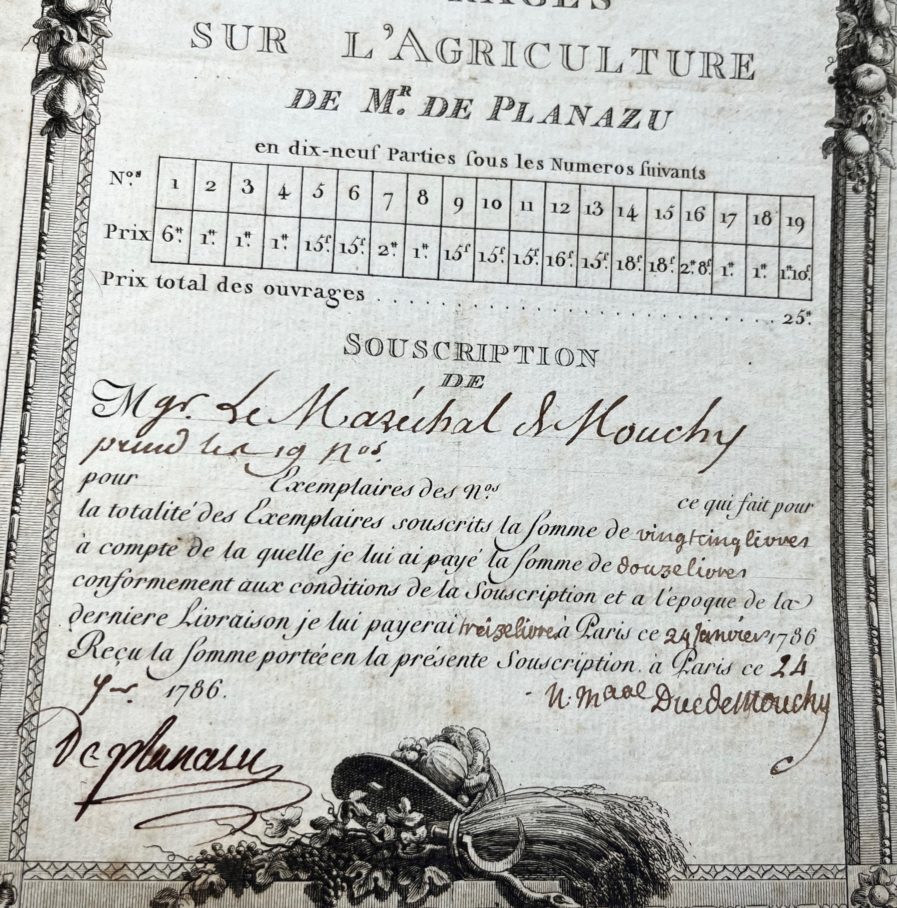 SUR L'AGRICULTURE
DE MR. DE PLANAZU
en dix-neuf Parties ſous les Numeros ſuivants
N.os 1 2 3 4 5 6 7 8 9 10 11 12 13 14 15 16 17 18 19
Prix 6.tt 1.tt 1.tt 1.tt 15.ſ 15.ſ 2.tt 1.tt 15.ſ 15.ſ 15.ſ 16.ſ 15.ſ 18.ſ 18.ſ 2.tt 8.ſ 1.tt 1.tt 1.tt 10.ſ
Prix total des ouvrages . . . . . . . . . . . . . . . . . . . . 25.tt
SOUSCRIPTION
DE
Mgr. Le Maréchal de Mouchy
prend les 19 nos.
pour Exemplaires des N.os ce qui fait pour
la totalité des Exemplaires souscrits la ſomme de vingt cinq livres
à compte de la quelle je lui ai payé la ſomme de douze livres
conformement aux conditions de la Souscription et a l'époque de la
derniere Livraison je lui payerai treize livres à Paris ce 24 janvier 1786
Reçu la ſomme portée en la présente Souscription. à Paris ce 24
1786.
N. Maal Duc de Mouchy
De planazu